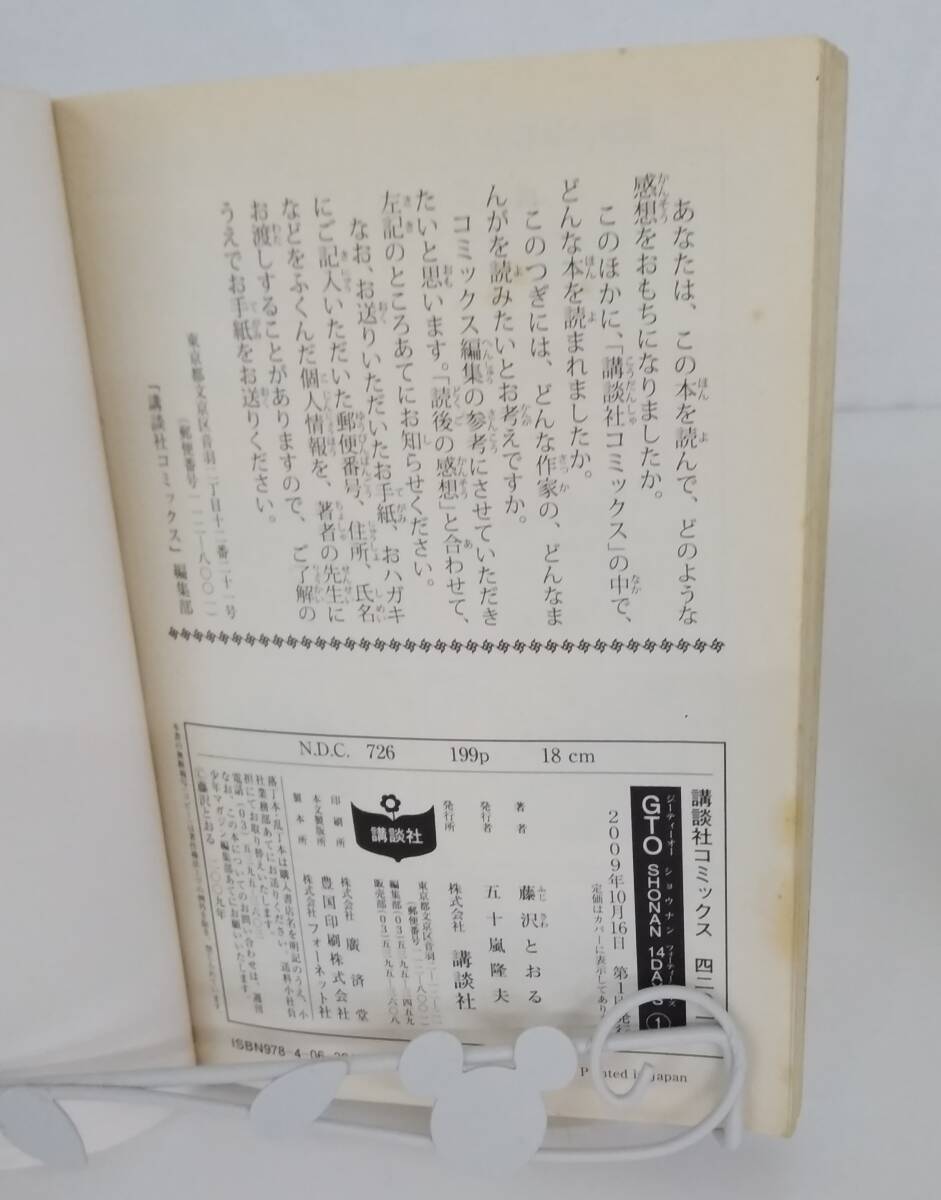 あなたは、この本を読んで、どのような
感想をおもちになりましたか。
このほかに、「講談社コミックス」の中で、
どんな本を読まれましたか。
このつぎには、どんな作家の、どんなま
んがを読みたいとお考えですか。
コミックス編集の参考にさせていただき
たいと思います。「読後の感想」と合わせて、
左記のところあてにお知らせください。
なお、お送りいただいたお手紙、おハガキ
にご記入いただいた郵便番号、住所、氏名
などをふくんだ個人情報を、著者の先生に
お渡しすることがありますので、ご了解の
うえでお手紙をお送りください。
東京都文京区音羽二丁目十二番二十一号
(郵便番号一一二―八〇〇一)
「講談社コミックス」編集部
N.D.C. 726 199p 18 cm
講談社コミックス
ジーティーオー ショウナン
GTO SHONAN 14DAYS ①
2009年10月16日 第1
定価はカバーに表示してあり
著者 藤沢とおる
発行者 五十嵐隆夫
発行所 株式会社 講談社
東京都文京区音羽
編集部(03)五三九五―三四五九
販売部(03)五三九五―三六〇八
講談社
印刷所 株式会社 廣済堂
本文製版所 豊国印刷株式会社
製本所 株式会社フォーネット社
落丁本・乱丁本は購入書店名を明記のうえ、小
社業務部あてにお送りください。送料小社負
担にてお取り替えいたします。
電話(03)五三九五―三六〇三
なお、この本についてのお問い合わせは、週刊
少年マガジン編集部あてにお願いいたします。
Ⓒ藤沢とおる 二〇〇九年
ISBN978-4-06
Printed in Japan